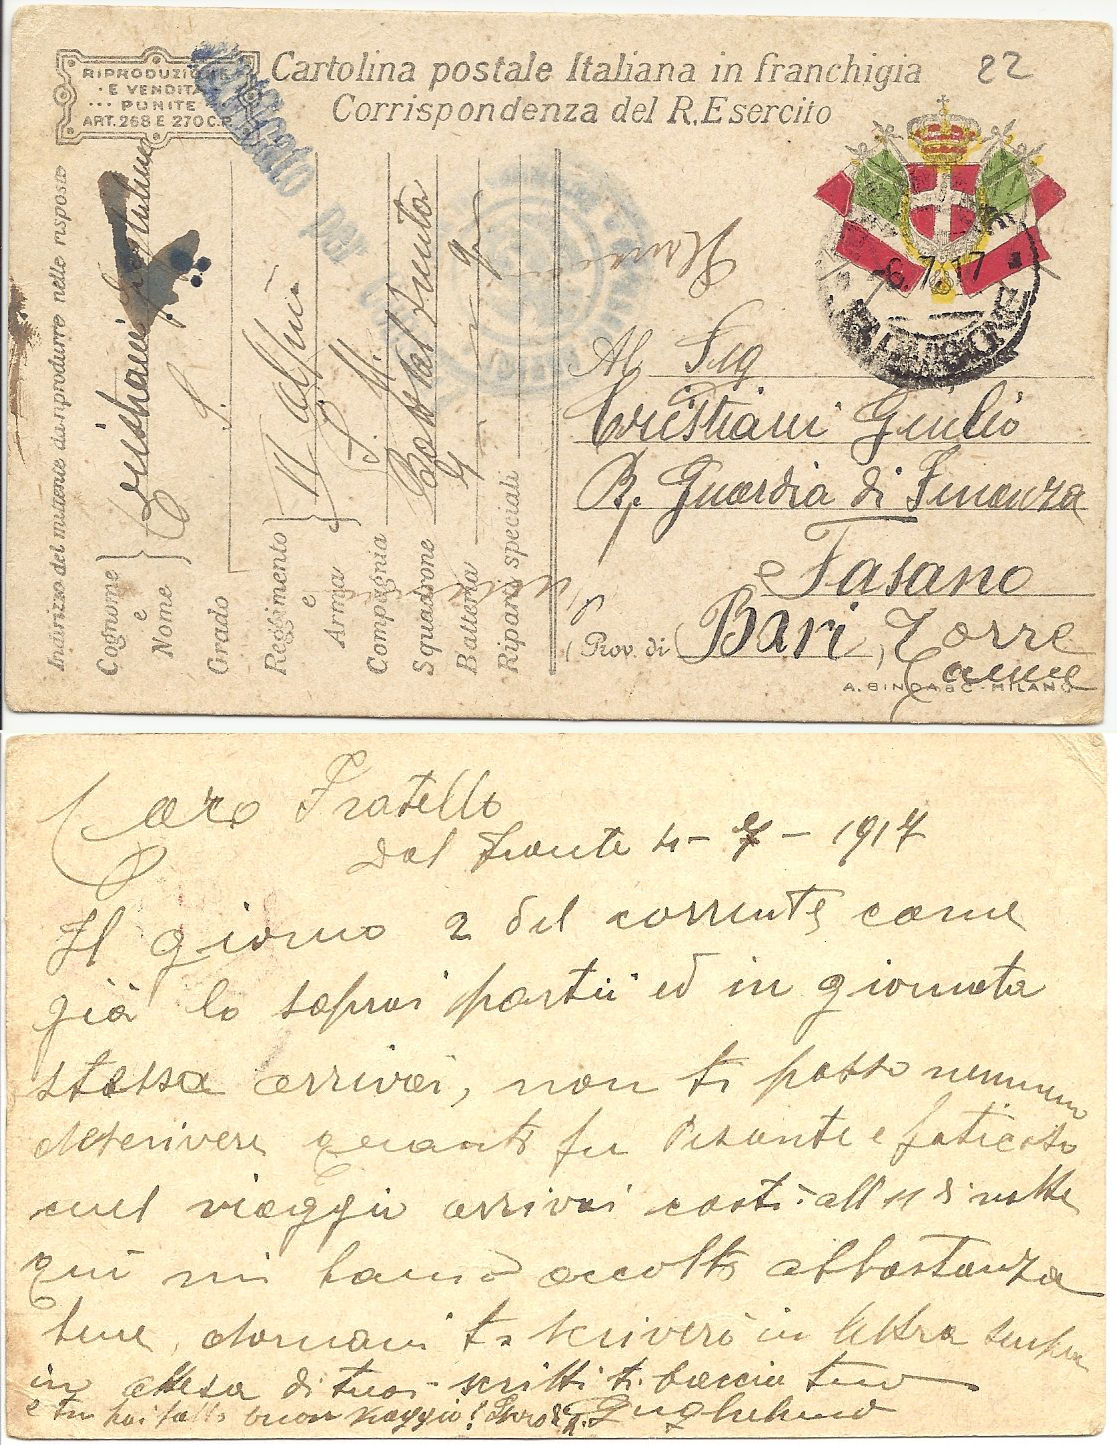 RIPRODUZIONE
E VENDITA
PUNITE
ART. 268 E 270 C.P.
Cartolina postale Italiana in franchigia
Corrispondenza del R. Esercito
22
Verificato per
Indirizzo del mittente da riprodurre nelle risposte
Cognome e Nome Cristiani
Grado S.
Reggimento e Arma
Compagnia
Squadrone
Batteria
Riparti speciali
6.7.17
Al Sig
Cristiani Giulio
R. Guardia di Finanza
Fasano
(Prov. di Bari, Torre
Canne
A. BINDA & C - MILANO
Caro Fratello
Dal fronte 4-7-1917
Il giorno 2 del corrente come
già lo saprai partii ed in giornata
stessa arrivai, non ti posso nemmeno
descrivere quanto fu pesante e faticoso
quel viaggio arrivai costì all'11 di notte
qui mi hanno accolto abbastanza
bene, domani ti scriverò in lettera
in attesa di tuoi scritti ti baccia tuo
e tu hai fatto buon viaggio? Guglielmo